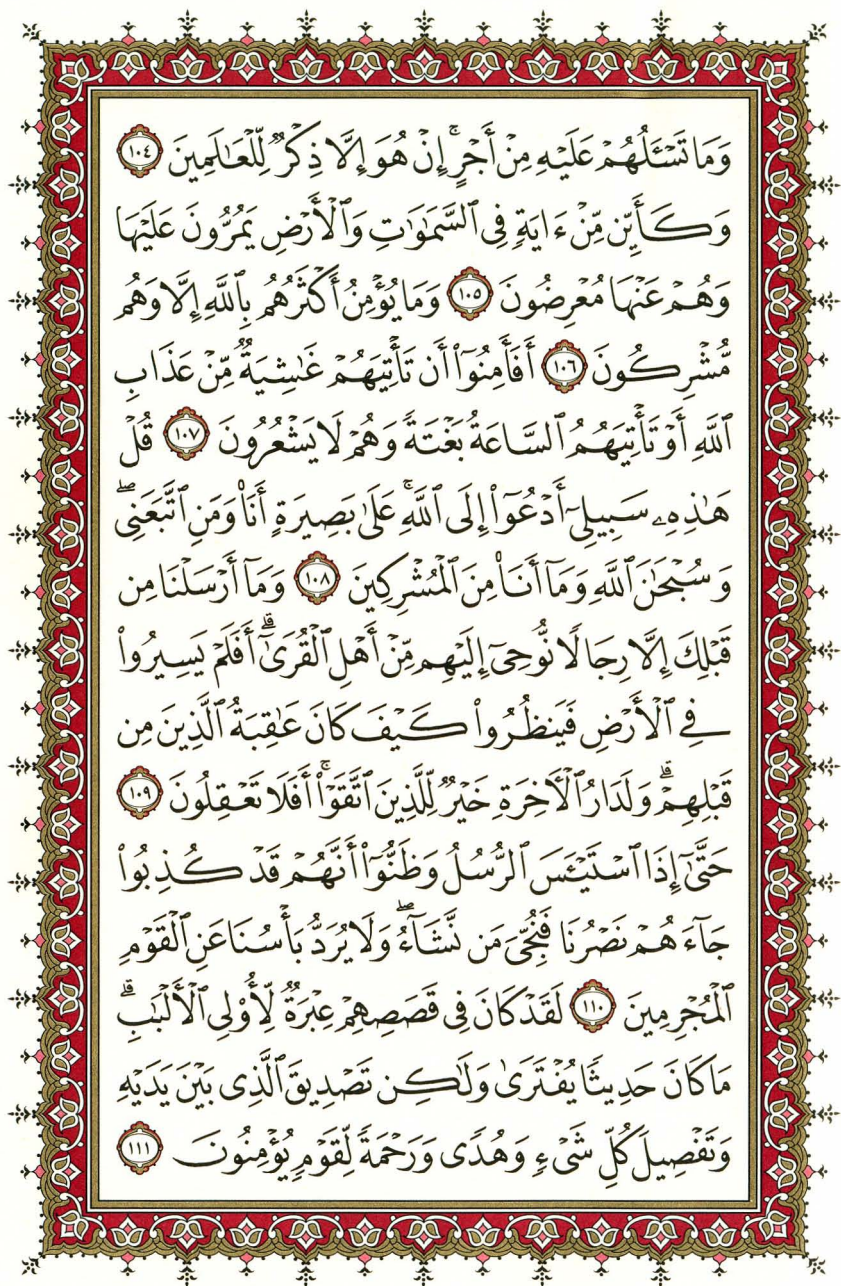 وَمَا تَسْـَٔلُهُمْ عَلَيْهِ مِنْ أَجْرٍ ۚ إِنْ هُوَ إِلَّا ذِكْرٌ لِّلْعَـٰلَمِينَ ١٠٤
وَكَأَيِّن مِّنْ ءَايَةٍ فِى ٱلسَّمَـٰوَٰتِ وَٱلْأَرْضِ يَمُرُّونَ عَلَيْهَا
وَهُمْ عَنْهَا مُعْرِضُونَ ١٠٥ وَمَا يُؤْمِنُ أَكْثَرُهُم بِٱللَّهِ إِلَّا وَهُم
مُّشْرِكُونَ ١٠٦ أَفَأَمِنُوٓا۟ أَن تَأْتِيَهُمْ غَـٰشِيَةٌ مِّنْ عَذَابِ
ٱللَّهِ أَوْ تَأْتِيَهُمُ ٱلسَّاعَةُ بَغْتَةً وَهُمْ لَا يَشْعُرُونَ ١٠٧ قُلْ
هَـٰذِهِۦ سَبِيلِىٓ أَدْعُوٓا۟ إِلَى ٱللَّهِ ۚ عَلَىٰ بَصِيرَةٍ أَنَا۠ وَمَنِ ٱتَّبَعَنِى ۖ
وَسُبْحَـٰنَ ٱللَّهِ وَمَآ أَنَا۠ مِنَ ٱلْمُشْرِكِينَ ١٠٨ وَمَآ أَرْسَلْنَا مِن
قَبْلِكَ إِلَّا رِجَالًا نُّوحِىٓ إِلَيْهِم مِّنْ أَهْلِ ٱلْقُرَىٰٓ ۗ أَفَلَمْ يَسِيرُوا۟
فِى ٱلْأَرْضِ فَيَنظُرُوا۟ كَيْفَ كَانَ عَـٰقِبَةُ ٱلَّذِينَ مِن
قَبْلِهِمْ ۗ وَلَدَارُ ٱلْـَٔاخِرَةِ خَيْرٌ لِّلَّذِينَ ٱتَّقَوْا۟ ۚ أَفَلَا تَعْقِلُونَ ١٠٩
حَتَّىٰٓ إِذَا ٱسْتَيْـَٔسَ ٱلرُّسُلُ وَظَنُّوٓا۟ أَنَّهُمْ قَدْ كُذِبُوا۟
جَآءَهُمْ نَصْرُنَا فَنُجِّىَ مَن نَّشَآءُ ۖ وَلَا يُرَدُّ بَأْسُنَا عَنِ ٱلْقَوْمِ
ٱلْمُجْرِمِينَ ١١٠ لَقَدْ كَانَ فِى قَصَصِهِمْ عِبْرَةٌ لِّأُو۟لِى ٱلْأَلْبَـٰبِ ۗ
مَا كَانَ حَدِيثًا يُفْتَرَىٰ وَلَـٰكِن تَصْدِيقَ ٱلَّذِى بَيْنَ يَدَيْهِ
وَتَفْصِيلَ كُلِّ شَىْءٍ وَهُدًى وَرَحْمَةً لِّقَوْمٍ يُؤْمِنُونَ ١١١